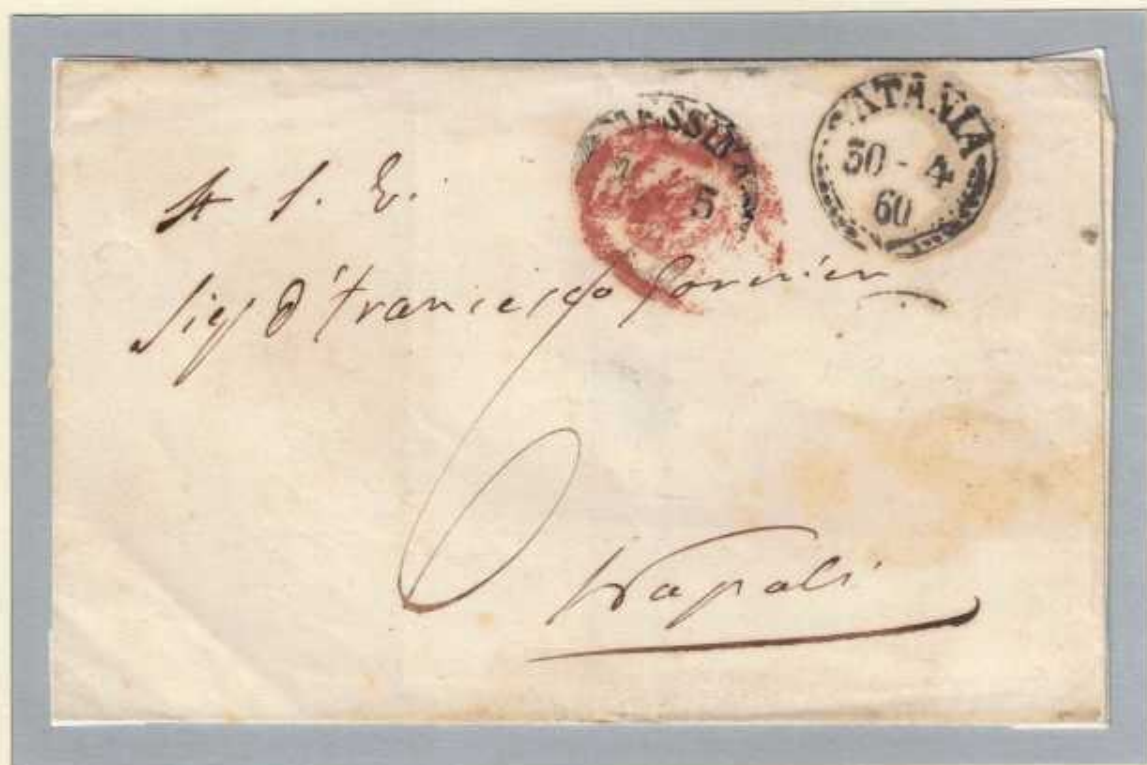 MESSINA
5
CATANIA
30 - 4
60
A S. E.
Sig D. Francesco
6
Napoli